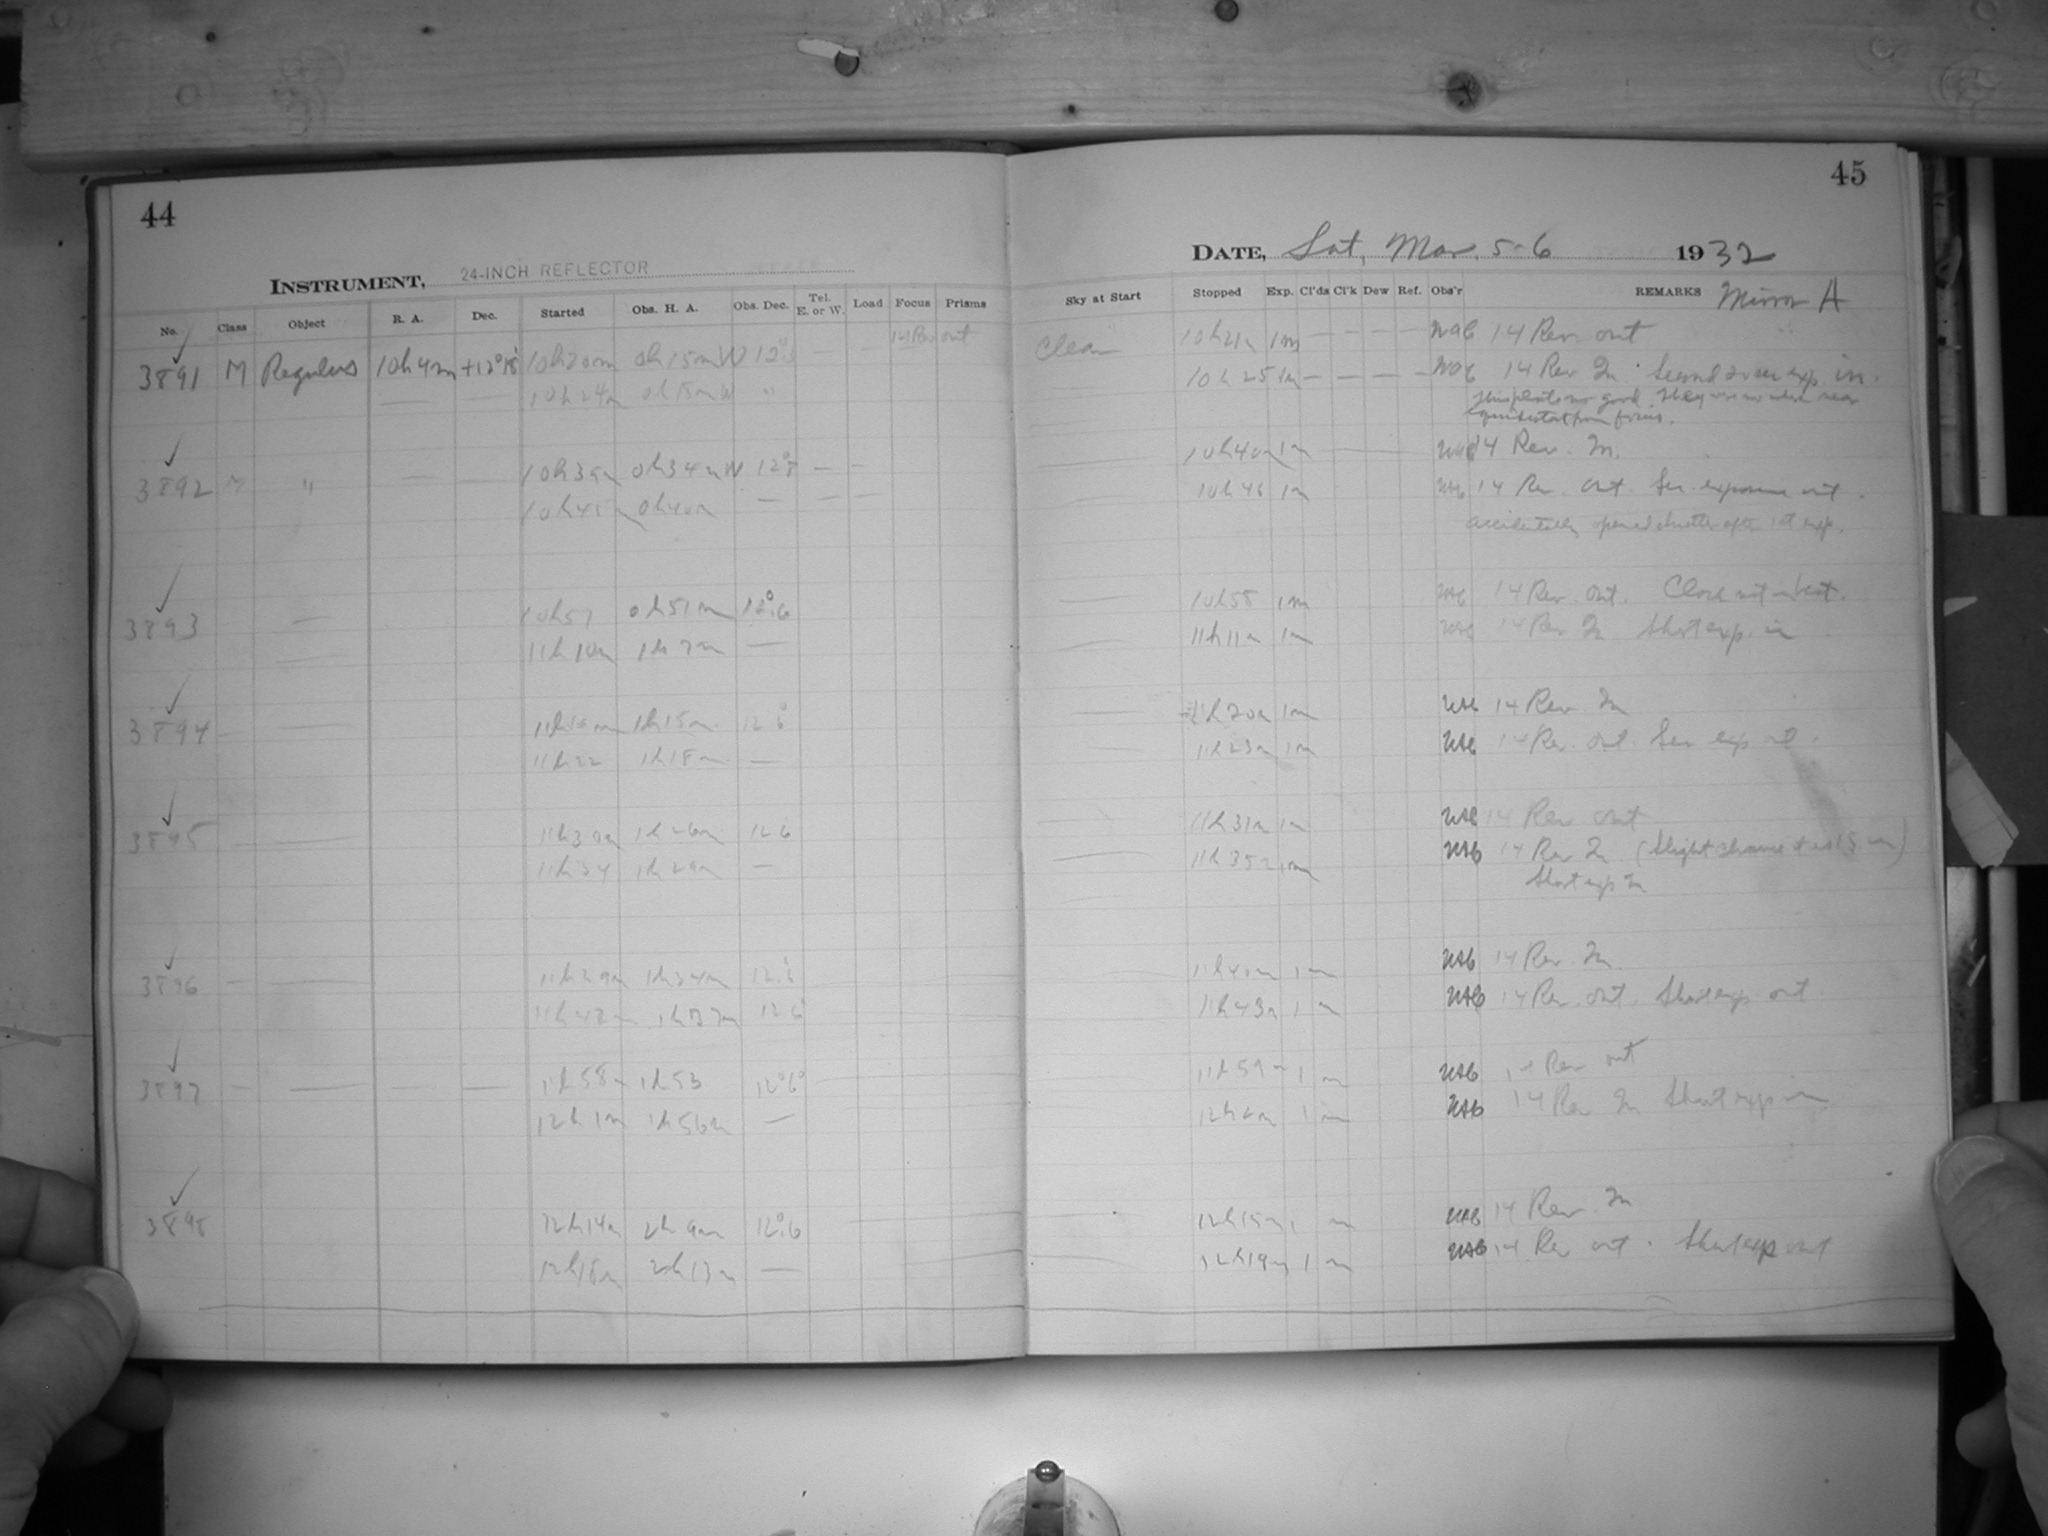 44
INSTRUMENT, 24-INCH REFLECTOR
No. Class Object R. A. Dec. Started Obs. H. A. Obs. Dec. Tel. E. or W. Load Focus Prisms
14 Rev out
3891 M Regulus 10h 4m +12°18' 10h20m 0h 15m W 12°
10h24m 0h18m W "
3892 M " 10h39m 0h34m W 12°
10h45m 0h40m —
3893 — 10h57 0h51m 12°.6
11h10m 1h7m —
3894 1h15m 12°6
11h22 1h18m —
3895 11h30m 1h26m 12 6
11h34 1h29m —
3896 1h34m 12.6
11h42m 1h37m 12.6
3897 — — — — 11h58m 1h53 12°6
12h1m 1h56m —
3898 12h14m 2h9m 12°.6
12h18m 2h13m —
45
DATE, Sat, Mar. 5-6 1932
Sky at Start Stopped Exp. Cl'ds Cl'k Dew Ref. Obs'r REMARKS Mirror A
Clear 10h21m 1m — — — — 14 Rev. out
10h25m 1m — — — — 14 Rev In. Second exp. in.
This plate no good. They were no where near
equidistant from focus.
10h40m 1m 14 Rev. In.
10h46 1m 14 Rev. out. Sec. exposure out.
accidentally opened shutter after 1st exp.
10h58 1m 14 Rev. out.
11h11m 1m 14 Rev In Short exp. in
11h20m 1m 14 Rev. In
11h23m 1m 14 Rev. out. Sec exp out.
11h31m 1m 14 Rev out
11h35 1m 14 Rev In (Slight
Short exp In
1m 14 Rev. In.
11h43m 1m 14 Rev. out. Short exp out.
11h59m 1m 14 Rev out
12h2m 1m 14 Rev In Short exp in
12h15m 1m 14 Rev. In
12h19m 1m 14 Rev out. Short exp out